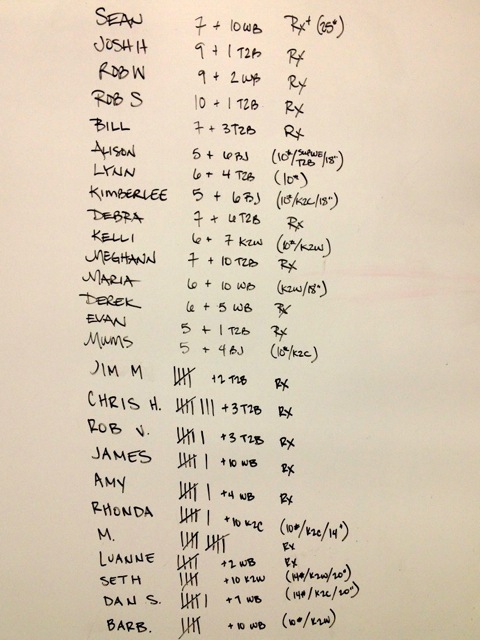 SEAN 7 + 10 WB Rx+ (25#)
JOSH H 9 + 1 T2B Rx
ROB W 9 + 2 WB Rx
ROB S 10 + 1 T2B Rx
BILL 7 + 3 T2B Rx
ALISON 5 + 6 BJ (10#/SUPINE T2B/18")
LYNN 6 + 4 T2B (10#)
KIMBERLEE 5 + 6 BJ (10#/K2C/18")
DEBRA 7 + 6 T2B Rx
KELLI 6 + 7 K2W (10#/K2W)
MEGHANN 7 + 10 T2B Rx
MARIA 6 + 10 WB (K2W/18")
DEREK 6 + 5 WB Rx
EVAN 5 + 1 T2B Rx
MUMS 5 + 4 BJ (10#/K2C)
JIM M 卌 +2 T2B Rx
CHRIS H. 卌 III +3 T2B Rx
ROB V. 卌 I +3 T2B Rx
JAMES 卌 I +10 WB Rx
AMY 卌 I +4 WB Rx
RHONDA 卌 I +10 K2C (10#/K2C/14")
M. 卌 卌 Rx
LUANNE 卌 +2 WB Rx
SETH 卌 +10 K2W (14#/K2W/20")
DAN S. 卌 I +7 WB (14#/K2C/20")
BARB. 卌 +10 WB (10#/K2W)